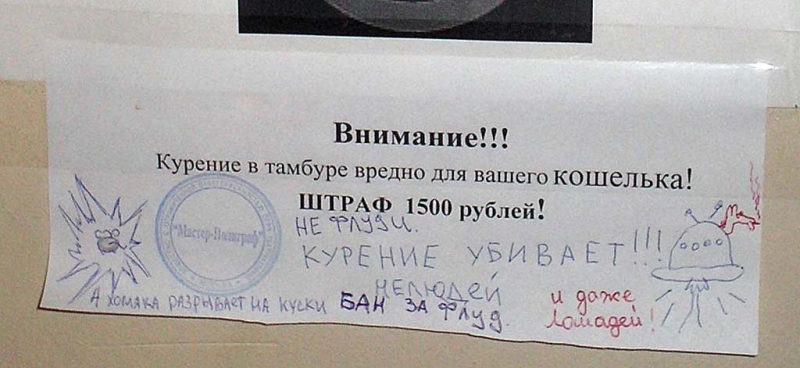 Внимание!!!
Курение в тамбуре вредно для вашего кошелька!
ШТРАФ 1500 рублей!
"Мастер-Полиграф"
НЕ ФЛУДИ.
КУРЕНИЕ УБИВАЕТ!!!
НЕЛЮДЕЙ
А ХОМАКА РАЗРЫВАЕТ НА КУСКИ БАН ЗА ФЛУД.
и даже
Ломадей!